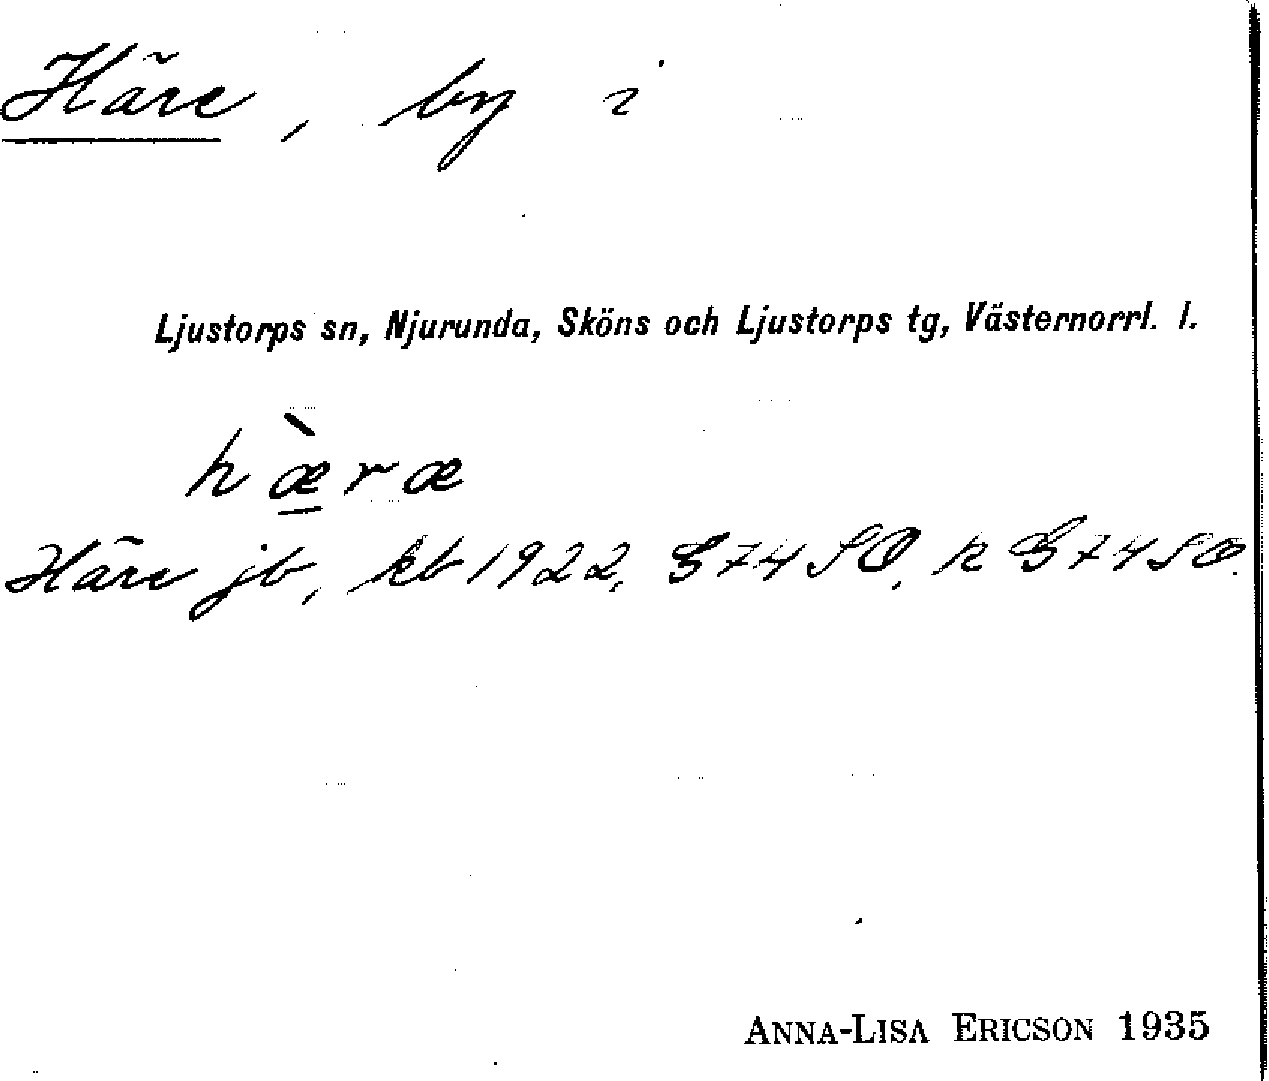 Häre, by i
Ljustorps sn, Njurunda, Sköns och Ljustorps tg, Västernorrl. l.
hæ̀ræ
Häre jb, kb 1922, G 74 SO, k G 74 SO.
ANNA-LISA ERICSON 1935